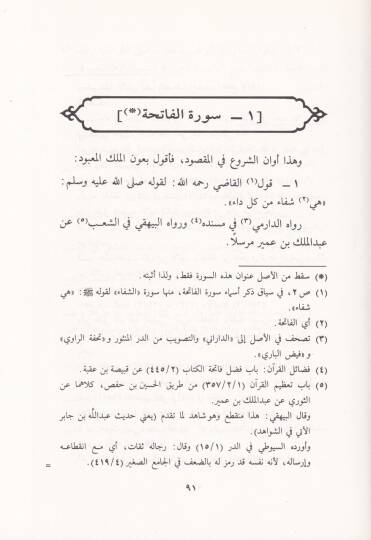 [١ ــ سورة الفاتحة(*)]
وهذا أوان الشروع في المقصود، فأقول بعون الملك المعبود:
١ ــ قول(١) القاضي رحمه الله: لقوله صلى الله عليه وسلم:
«هي(٢) شفاء من كل داء».
رواه الدارمي(٣) في مسنده(٤) ورواه البيهقي في الشعب(٥) عن
عبدالملك بن عمير مرسلًا.
(*) سقط من الأصل عنوان هذه السورة فقط، ولذا أثبته.
(١) ص ٢، في سياق ذكر أسماء سورة الفاتحة، منها سورة «الشفاء» لقوله ﷺ: «هي
شفاء».
(٢) أي الفاتحة.
(٣) تصحف في الأصل إلى «الداراني» والتصويب من الدر المنثور و«تحفة الراوي»
و«فيض الباري».
(٤) فضائل القرآن: باب فضل فاتحة الكتاب (٤٤٥/٢) عن قبيصة بن عقبة.
(٥) باب تعظيم القرآن (٣٥٧/٢/١) من طريق الحسين بن حفص، كلاهما عن
الثوري عن عبدالملك بن عمير.
وقال البيهقي: هذا منقطع وهو شاهد لما تقدم (يعني حديث عبدالله بن جابر
الآتي في الشواهد).
وأورده السيوطي في الدر (١٥/١) وقال: رجاله ثقات، أي مع انقطاعه
وإرساله، لأنه نفسه قد رمز له بالضعف في الجامع الصغير (٤١٩/٤). =
٩١